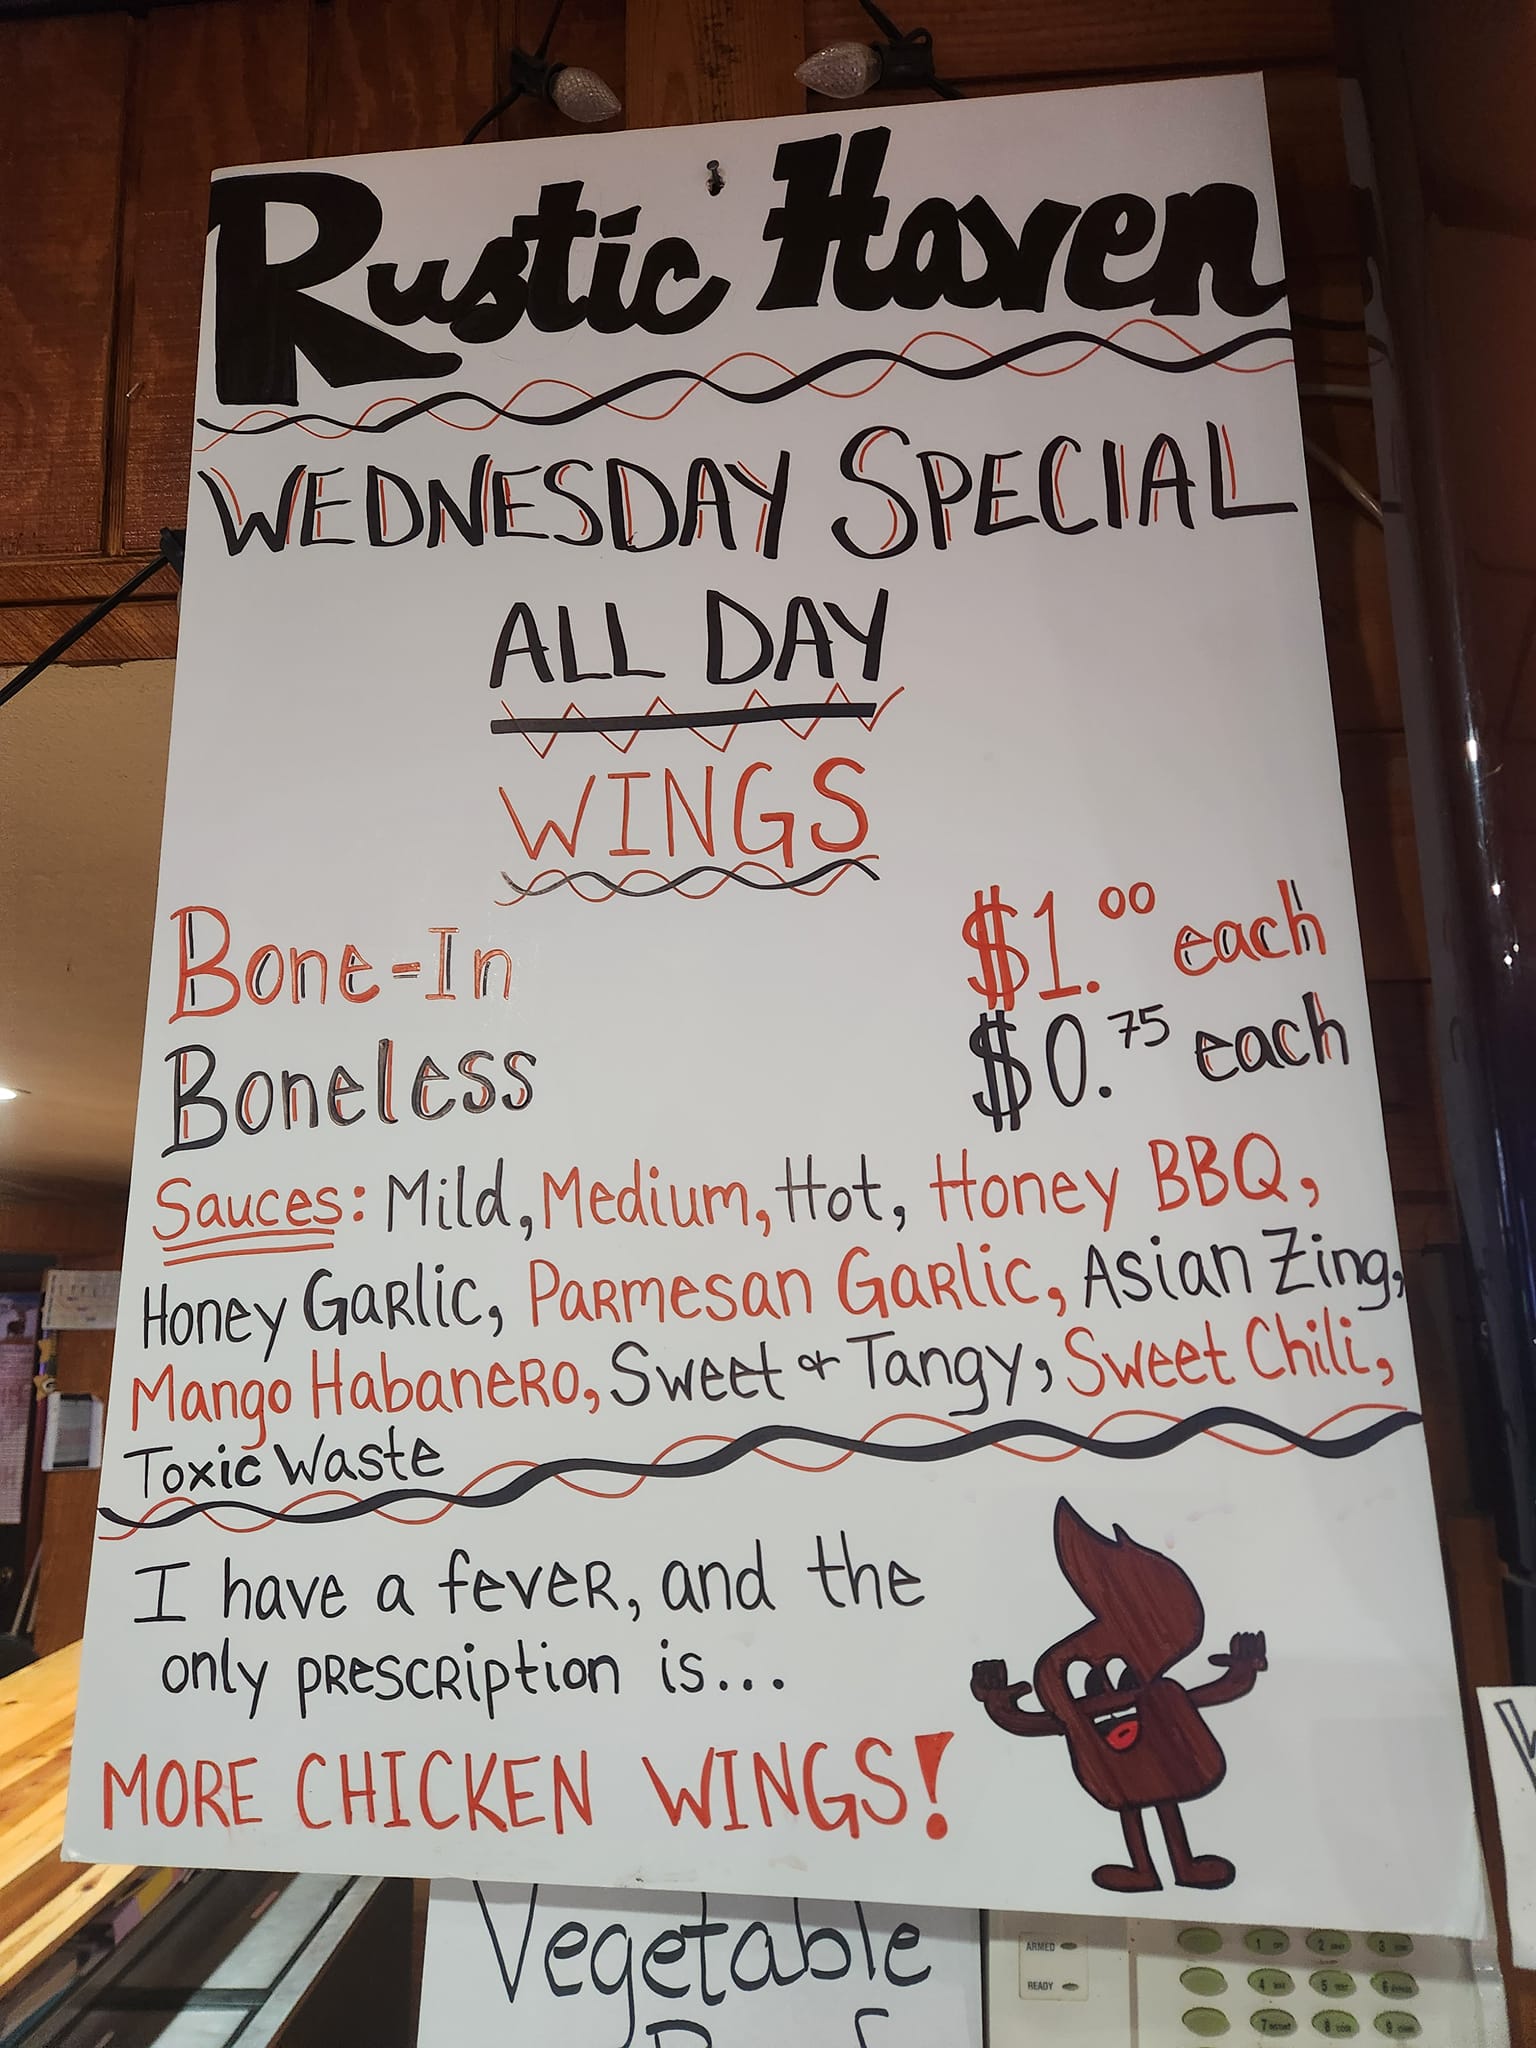 Rustic Haven
WEDNESDAY SPECIAL
ALL DAY
WINGS
Bone-In $1.00 each
Boneless $0.75 each
Sauces: Mild, Medium, Hot, Honey BBQ,
Honey Garlic, Parmesan Garlic, Asian Zing,
Mango Habanero, Sweet & Tangy, Sweet Chili,
Toxic Waste
I have a fever, and the
only prescription is...
MORE CHICKEN WINGS!
Vegetable
ARMED
READY
1 2 3
4 5 6
7 8 9